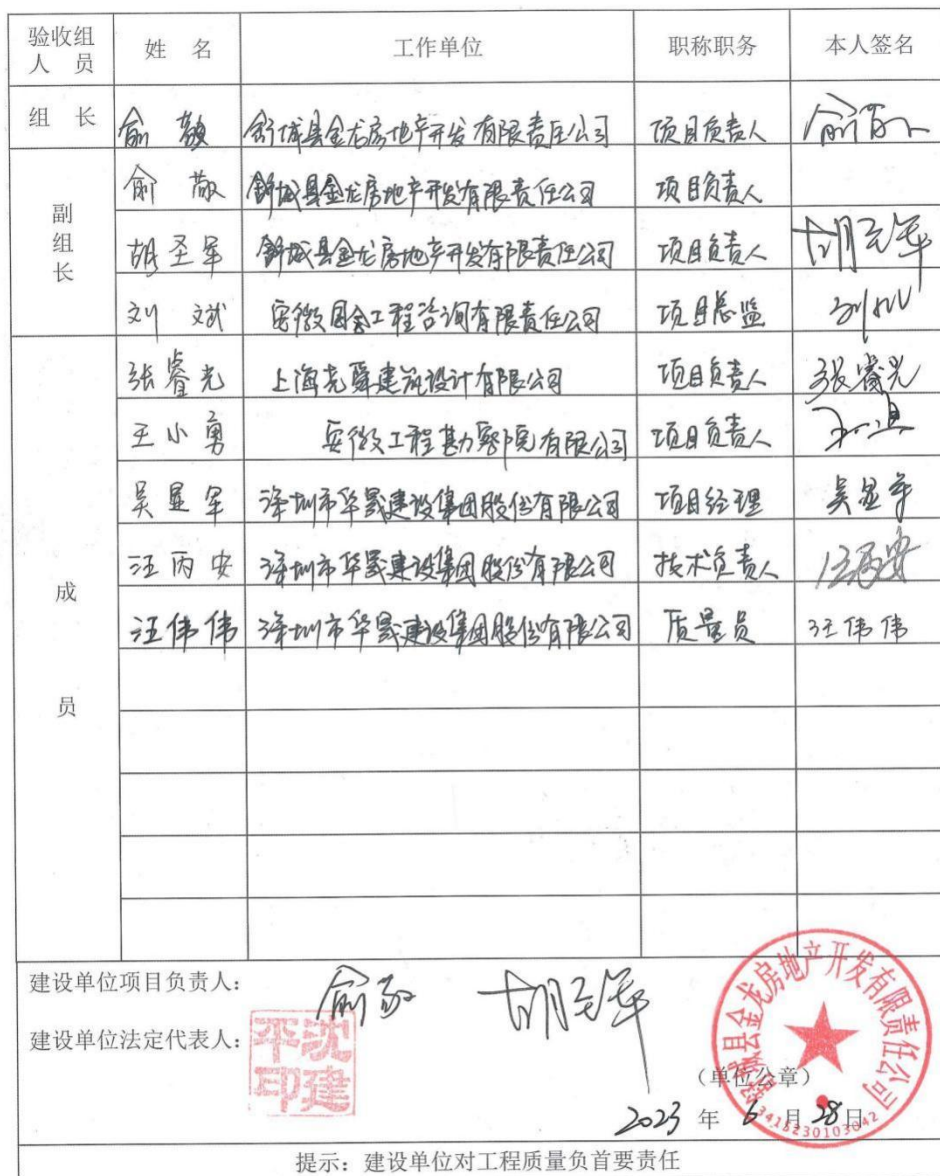 验收组人员 姓 名 工作单位 职称职务 本人签名
组 长 俞敬 舒城县金龙房地产开发有限责任公司 项目负责人 俞敬
副组长 俞敬 舒城县金龙房地产开发有限责任公司 项目负责人
胡圣军 舒城县金龙房地产开发有限责任公司 项目负责人 胡圣军
刘斌 安徽国合工程咨询有限责任公司 项目总监 刘斌
成员 张睿光 上海尧舜建筑设计有限公司 项目负责人 张睿光
王小勇 安徽工程勘察院有限公司 项目负责人
吴显军 深圳市华晟建设集团股份有限公司 项目经理 吴显军
汪丙安 深圳市华晟建设集团股份有限公司 技术负责人 汪丙安
汪伟伟 深圳市华晟建设集团股份有限公司 质量员 汪伟伟
建设单位项目负责人： 俞敬 胡圣军
建设单位法定代表人： 沈建平印
舒城县金龙房地产开发有限责任公司
（单位公章）
3415230103042
2023 年 6 月 28 日
提示：建设单位对工程质量负首要责任